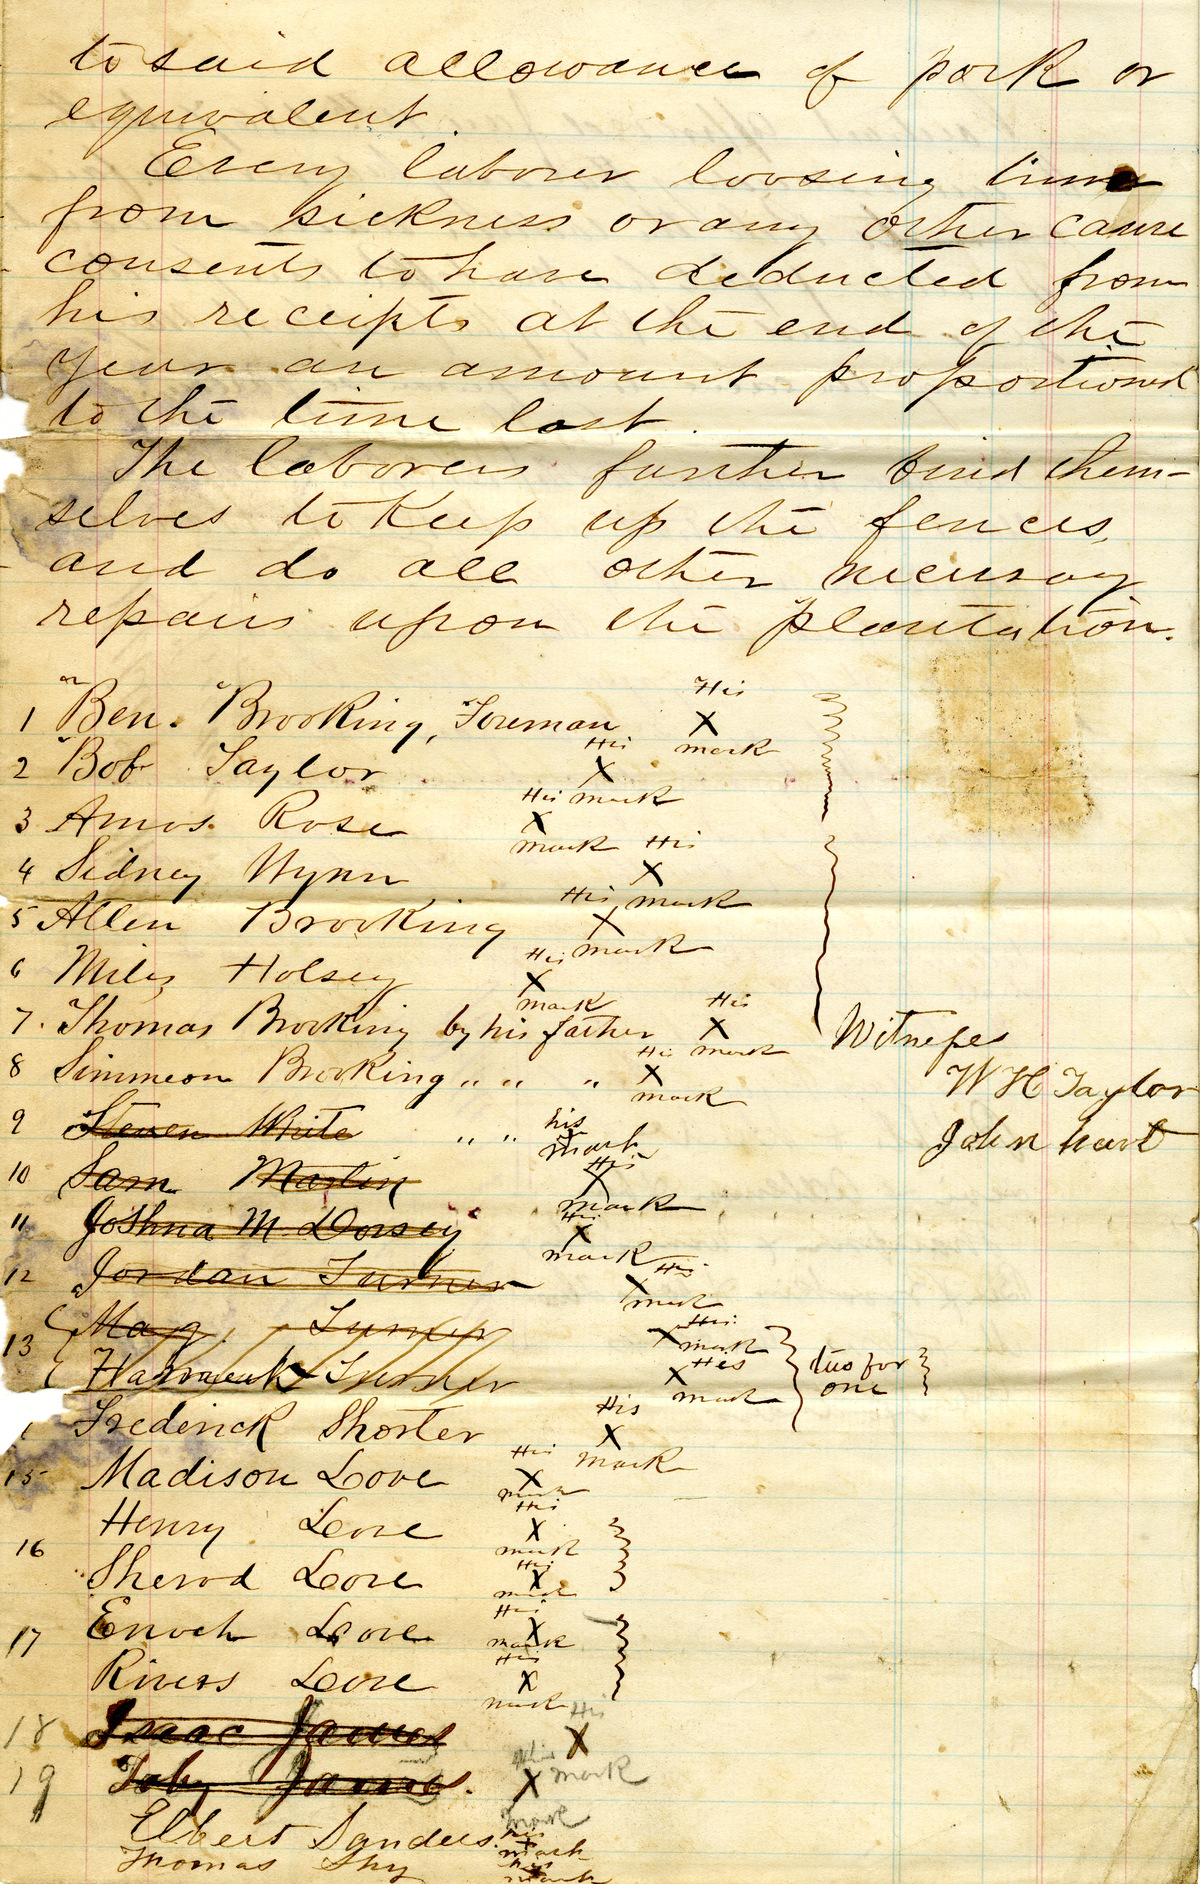 to said allowance of pork or
equivalent.
Every laborer loosing time
from sickness or any other cause
consents to have deducted from
his receipts at the end of the
year an amount proportioned
to the time lost.
The laborers further bind them-
selves to keep up the fences,
and do all other necessary
repairs upon the plantation.
1 Ben. Brooking, Foreman His X mark
2 Bob Taylor His X mark
3 Amos Rose His X mark
4 Sidney Wynn His X mark
5 Allen Brooking His X mark
6 Miles Holsey His X mark
7. Thomas Brooking by his father His X mark
Witness
8 Simmeon Brooking " " " His X mark
W H Taylor
9 Steven White " " his X mark
John hart
10 Sam Martin His X mark
11 Joshua M. Dorsey His X mark
12 Jordan Turner His X mark
13 Mag. Turner His X mark
Turner His X mark two for one
Frederick Shorter His X mark
15 Madison Love His X mark
Henry Love His X mark
16
Sherod Love His X mark
Enoch Love His X mark
17
Rivers Love His X mark
18 Isaac James His X mark
19 Toby James. His X mark
Elbert Sanders. his X mark
Thomas Shy his X mark